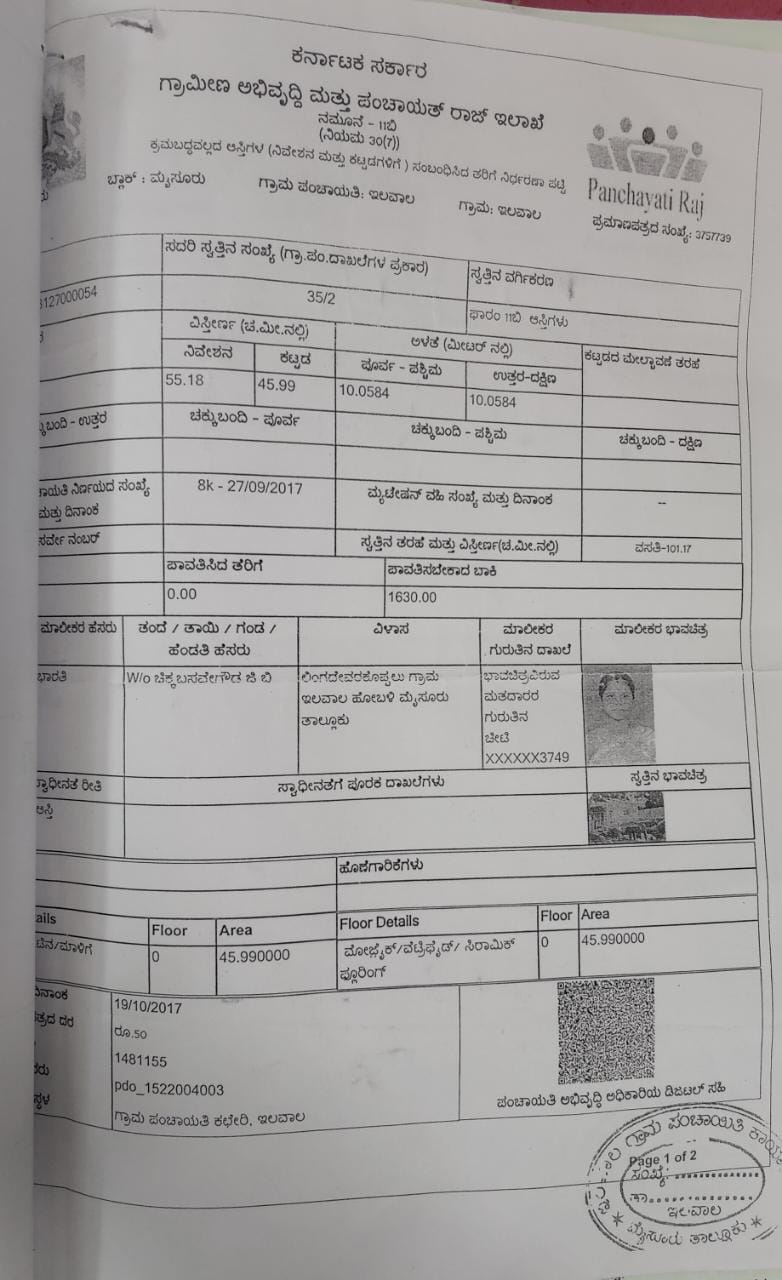 ಕರ್ನಾಟಕ ಸರ್ಕಾರ
ಗ್ರಾಮೀಣ ಅಭಿವೃದ್ಧಿ ಮತ್ತು ಪಂಚಾಯತ್ ರಾಜ್ ಇಲಾಖೆ
ನಮೂನೆ - 11ಬಿ
(ನಿಯಮ 30(7))
ಕ್ರಮಬದ್ಧವಲ್ಲದ ಆಸ್ತಿಗಳ (ನಿವೇಶನ ಮತ್ತು ಕಟ್ಟಡಗಳಿಗೆ ) ಸಂಬಂಧಿಸಿದ ತೆರಿಗೆ ನಿರ್ಧರಣಾ ಪಟ್ಟಿ
Panchayati Raj
ಬ್ಲಾಕ್ : ಮೈಸೂರು ಗ್ರಾಮ ಪಂಚಾಯತಿ: ಇಲವಾಲ ಗ್ರಾಮ: ಇಲವಾಲ
ಪ್ರಮಾಣಪತ್ರದ ಸಂಖ್ಯೆ: 3757739
ಸದರಿ ಸ್ವತ್ತಿನ ಸಂಖ್ಯೆ (ಗ್ರಾ.ಪಂ.ದಾಖಲೆಗಳ ಪ್ರಕಾರ) ಸ್ವತ್ತಿನ ವರ್ಗಿಕರಣ
127000054 35/2 ಫಾರಂ 11ಬಿ ಆಸ್ತಿಗಳು
ವಿಸ್ತೀರ್ಣ (ಚ.ಮೀ.ನಲ್ಲಿ) ಅಳತೆ (ಮೀಟರ್ ನಲ್ಲಿ) ಕಟ್ಟಡದ ಮೇಲ್ಛಾವಣೆ ತರಹೆ
ನಿವೇಶನ ಕಟ್ಟಡ ಪೂರ್ವ - ಪಶ್ಚಿಮ ಉತ್ತರ-ದಕ್ಷಿಣ
55.18 45.99 10.0584 10.0584
ಬಂದಿ - ಉತ್ತರ ಚಕ್ಕುಬಂದಿ - ಪೂರ್ವ ಚಕ್ಕುಬಂದಿ - ಪಶ್ಚಿಮ ಚಕ್ಕುಬಂದಿ - ದಕ್ಷಿಣ
ಾಯತಿ ನಿರ್ಣಯದ ಸಂಖ್ಯೆ 8k - 27/09/2017 ಮ್ಯುಟೇಷನ್ ವಹಿ ಸಂಖ್ಯೆ ಮತ್ತು ದಿನಾಂಕ --
ಮತ್ತು ದಿನಾಂಕ
ಸರ್ವೇ ನಂಬರ್ ಸ್ವತ್ತಿನ ತರಹೆ ಮತ್ತು ವಿಸ್ತೀರ್ಣ(ಚ.ಮೀ.ನಲ್ಲಿ) ವಸತಿ-101.17
ಪಾವತಿಸಿದ ತೆರಿಗೆ ಪಾವತಿಸಬೇಕಾದ ಬಾಕಿ
0.00 1630.00
ಮಾಲೀಕರ ಹೆಸರು ತಂದೆ / ತಾಯಿ / ಗಂಡ / ವಿಳಾಸ ಮಾಲೀಕರ ಮಾಲೀಕರ ಭಾವಚಿತ್ರ
ಹೆಂಡತಿ ಹೆಸರು ಗುರುತಿನ ದಾಖಲೆ
ಭಾರತಿ W/o ಚಿಕ್ಕಬಸವೇಗೌಡ ಜಿ ಬಿ ಲಿಂಗದೇವರಕೊಪ್ಪಲು ಗ್ರಾಮ ಭಾವಚಿತ್ರವಿರುವ
ಇಲವಾಲ ಹೋಬಳಿ ಮೈಸೂರು ಮತದಾರರ
ತಾಲ್ಲೂಕು ಗುರುತಿನ
ಚೀಟಿ
XXXXXX3749
ಸ್ವಾಧೀನತೆ ರೀತಿ ಸ್ವಾಧೀನತೆಗೆ ಪೂರಕ ದಾಖಲೆಗಳು ಸ್ವತ್ತಿನ ಭಾವಚಿತ್ರ
ಆಸ್ತಿ
ಹೊಣೆಗಾರಿಕೆಗಳು
ails Floor Area Floor Details Floor Area
ಮಾಳಿಗೆ 0 45.990000 ಮೋಜೈಕ್/ವೆಟ್ರಿಫೈಡ್/ ಸಿರಾಮಿಕ್ 0 45.990000
ಫ್ಲೂರಿಂಗ್
ದಿನಾಂಕ 19/10/2017
ತ್ರದ ದರ ರೂ.50
1481155
pdo_1522004003
ಸ್ಥಳ ಗ್ರಾಮ ಪಂಚಾಯತಿ ಕಛೇರಿ, ಇಲವಾಲ
ಪಂಚಾಯತಿ ಅಭಿವೃದ್ಧಿ ಅಧಿಕಾರಿಯ ಡಿಜಿಟಲ್ ಸಹಿ
ಗ್ರಾಮ ಪಂಚಾಯಿತಿ
Page 1 of 2
ಸಂಖ್ಯೆ:
ತಾ
ಇಲವಾಲ
ಮೈಸೂರು ತಾಲ್ಲೂಕು